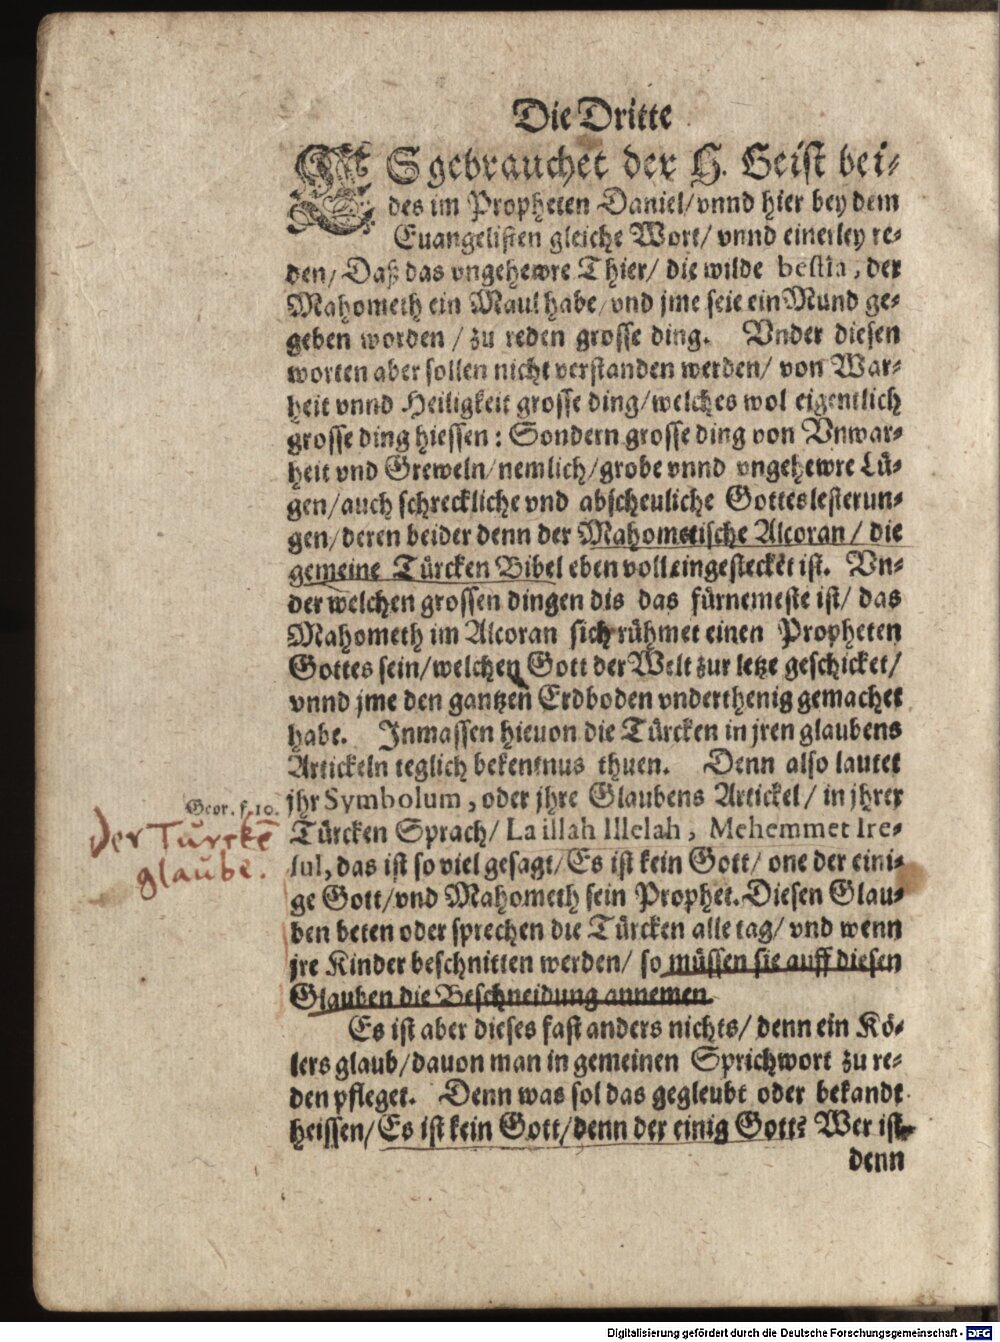 Die Dritte
ES gebrauchet der H. Geist bei-
des im Propheten Daniel/vnnd hier bey dem
Euangelisten gleiche Wort/ vnnd einerley re-
den/ Daß das vngehewre Thier/ die wilde bestia, der
Mahometh ein Maul habe/vnd jme seie ein Mund ge-
geben worden / zu reden grosse ding. Vnder diesen
worten aber sollen nicht verstanden werden/ von War-
heit vnnd Heiligkeit grosse ding/welches wol eigentlich
grosse ding hiessen: Sondern grosse ding von Vnwar-
heit vnd Greweln/nemlich/grobe vnnd vngehewre Lü-
gen/auch schreckliche vnd abscheuliche Gotteslesterun-
gen/deren beider denn der Mahometische Alcoran/ die
gemeine Türcken Bibel eben voll eingestecket ist. Vn-
der welchen grossen dingen dis das fürnemeste ist/ das
Mahometh im Alcoran sich rühmet einen Propheten
Gottes sein/welchen Gott der Welt zur letze geschicket/
vnnd jme den gantzen Erdboden vnderthenig gemachet
habe. Inmassen hieuon die Türcken in jren glaubens
Artickeln teglich bekentnus thuen. Denn also lautet
Geor. f. 10.
jhr Symbolum, oder jhre Glaubens Artickel/ in jhrer
der Türckē
Türcken Sprach/ La illah Illelah, Mehemmet Ire-
glaube.
sul, das ist so viel gesagt/Es ist kein Gott/ one der eini-
ge Gott/vnd Mahometh sein Prophet. Diesen Glau-
ben beten oder sprechen die Türcken alle tag/ vnd wenn
jre Kinder beschnitten werden/ so müssen sie auff diesen
Glauben die Beschneidung annemen.
Es ist aber dieses fast anders nichts/ denn ein Kö-
lers glaub/dauon man in gemeinen Sprichwort zu re-
den pfleget. Denn was sol das gegleubt oder bekandt
heissen/Es ist kein Gott/denn der einig Gott? Wer ist
denn
Digitalisierung gefördert durch die Deutsche Forschungsgemeinschaft - DFG